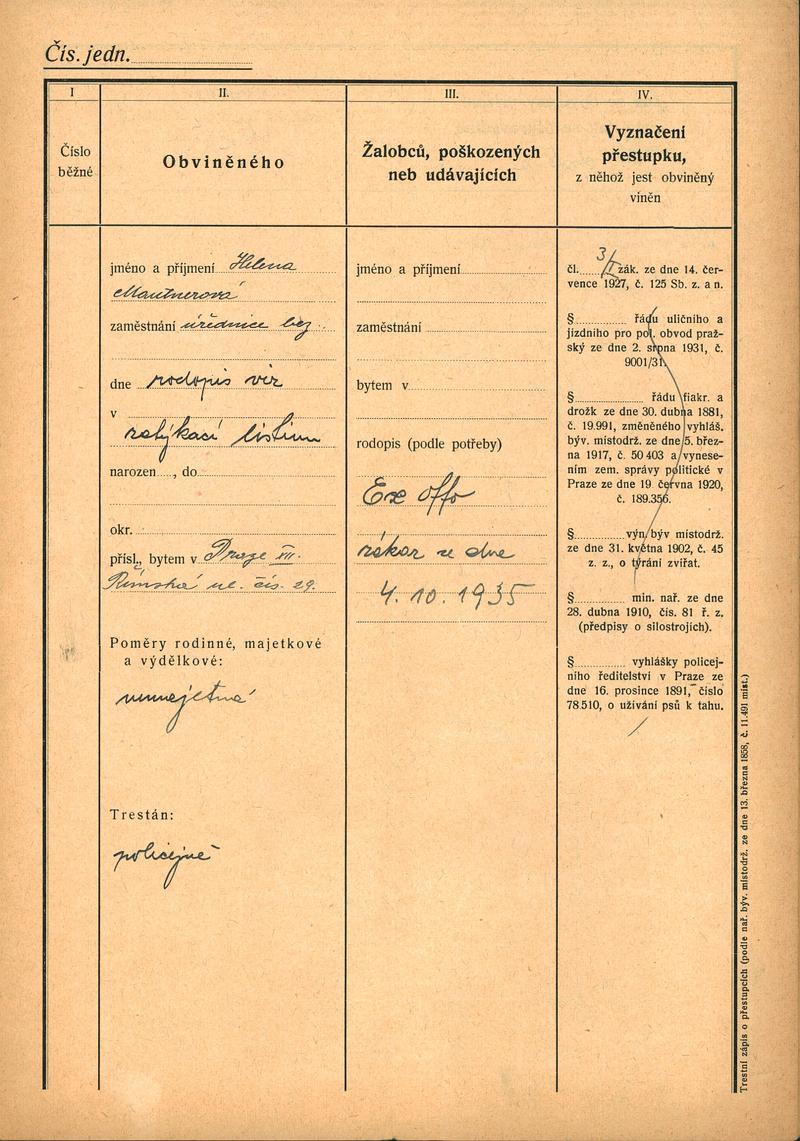 Čís. jedn.
I
II.
III.
IV.
Číslo
běžné
Obviněného
Žalobců, poškozených
neb udávajících
Vyznačení
přestupku,
z něhož jest obviněný
viněn
jméno a příjmení Helena
Mautnerová
zaměstnání úřednice bez
dne rodopis viz
v
zatýkací listinu
narozen , do
okr.
přísl., bytem v Praze XII.
Římská ul. čís. 29.
Poměry rodinné, majetkové
a výdělkové:
nemajetná
Trestán:
policejně
jméno a příjmení
zaměstnání
bytem v
rodopis (podle potřeby)
Ex offo
zákaz ze dne
4. 10. 1935
čl. 3/ zák. ze dne 14. čer-
vence 1927, č. 125 Sb. z. a n.
§ řádu uličního a
jízdního pro pol. obvod praž-
ský ze dne 2. srpna 1931, č.
9001/31.
§ řádu fiakr. a
drožk ze dne 30. dubna 1881,
č. 19.991, změněného vyhláš.
býv. místodrž. ze dne 5. břez-
na 1917, č. 50 403 a vynese-
ním zem. správy politické v
Praze ze dne 19. června 1920,
č. 189.356.
§ výn. býv místodrž.
ze dne 31. května 1902, č. 45
z. z., o týrání zvířat.
§ min. nař. ze dne
28. dubna 1910, čís. 81 ř. z.
(předpisy o silostrojích).
§ vyhlášky policej-
ního ředitelství v Praze ze
dne 16. prosince 1891, číslo
78.510, o užívání psů k tahu.
Trestní zápis o přestupcích (podle nař. býv. místodrž. ze dne 13. března 1858, č. 11.491 míst.)